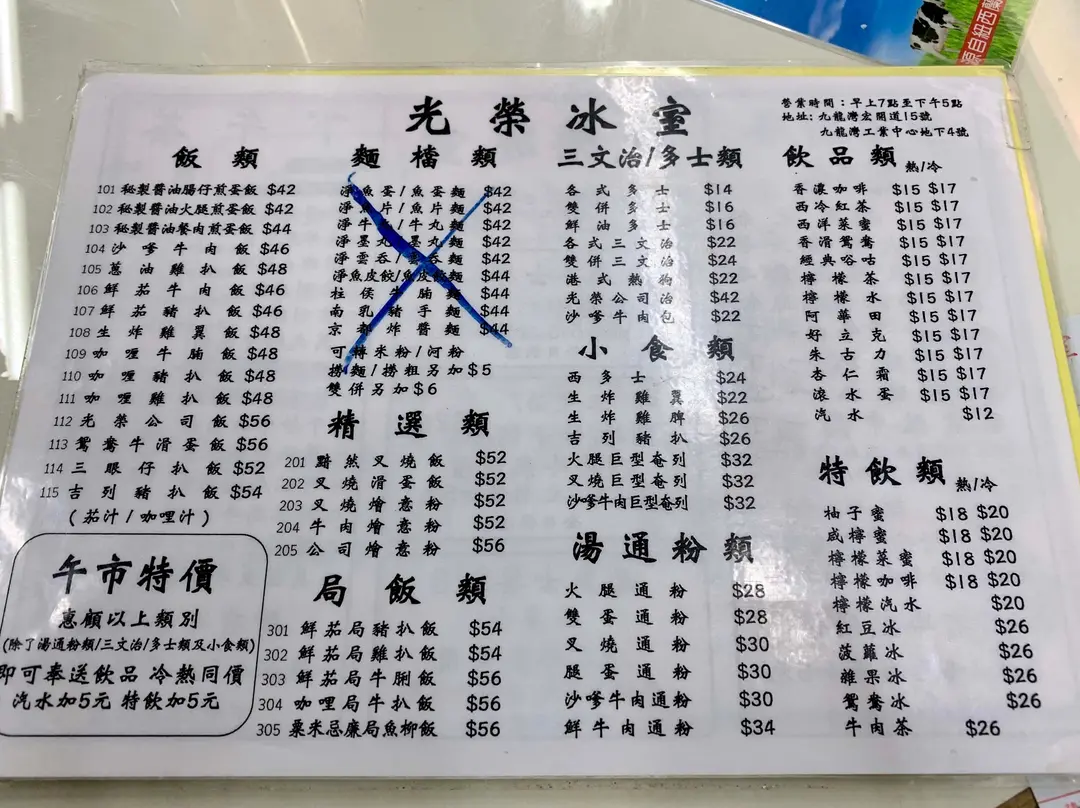 光榮冰室
營業時間：早上7點至下午5點
地址: 九龍灣宏開道15號
九龍灣工業中心地下4號
飯類
101 秘製醬油腸仔煎蛋飯 $42
102 秘製醬油火腿煎蛋飯 $42
103 秘製醬油餐肉煎蛋飯 $44
104 沙嗲牛肉飯 $46
105 蔥油雞扒飯 $48
106 鮮茄牛肉飯 $46
107 鮮茄豬扒飯 $46
108 生炸雞翼飯 $48
109 咖喱牛腩飯 $48
110 咖喱豬扒飯 $48
111 咖喱雞扒飯 $48
112 光榮公司飯 $56
113 鴛鴦牛滑蛋飯 $56
114 三眼仔扒飯 $52
115 吉列豬扒飯 $54
(茄汁/咖哩汁)
午市特價
惠顧以上類別
(除了湯通粉類/三文治/多士類及小食類)
即可奉送飲品 冷熱同價
汽水加5元 特飲加5元
麵檔類
淨魚蛋/魚蛋麵 $42
淨魚片/魚片麵 $42
淨牛丸/牛丸麵 $42
淨墨丸/墨丸麵 $42
淨雲吞/雲吞麵 $42
淨魚皮餃/魚皮餃麵 $44
柱侯牛腩麵 $44
南乳豬手麵 $44
京都炸醬麵 $44
可轉米粉/河粉
撈麵/撈粗另加$5
雙併另加$6
精選類
201 黯然叉燒飯 $52
202 叉燒滑蛋飯 $52
203 叉燒燴意粉 $52
204 牛肉燴意粉 $52
205 公司燴意粉 $56
局飯類
301 鮮茄局豬扒飯 $54
302 鮮茄局雞扒飯 $54
303 鮮茄局牛脷飯 $56
304 咖喱局牛扒飯 $56
305 粟米忌廉局魚柳飯 $56
三文治/多士類
各式多士 $14
雙併多士 $16
鮮油多士 $16
各式三文治 $22
雙併三文治 $24
港式熱狗 $22
光榮公司治 $42
沙嗲牛肉包 $22
小食類
西多士 $24
生炸雞翼 $22
生炸雞脾 $26
吉列豬扒 $26
火腿巨型奄列 $32
叉燒巨型奄列 $32
沙嗲牛肉巨型奄列 $32
湯通粉類
火腿通粉 $28
雙蛋通粉 $28
叉燒通粉 $30
腿蛋通粉 $30
沙嗲牛肉通粉 $30
鮮牛肉通粉 $34
飲品類 熱/冷
香濃咖啡 $15 $17
西冷紅茶 $15 $17
西洋菜蜜 $15 $17
香滑鴛鴦 $15 $17
經典唂咕 $15 $17
檸檬茶 $15 $17
檸檬水 $15 $17
阿華田 $15 $17
好立克 $15 $17
朱古力 $15 $17
杏仁霜 $15 $17
滾水蛋 $15 $17
汽水 $12
特飲類 熱/冷
柚子蜜 $18 $20
咸檸蜜 $18 $20
檸檬菜蜜 $18 $20
檸檬咖啡 $18 $20
檸檬汽水 $20
紅豆冰 $26
菠蘿冰 $26
雜果冰 $26
鴛鴦冰 $26
牛肉茶 $26
源自紐西蘭